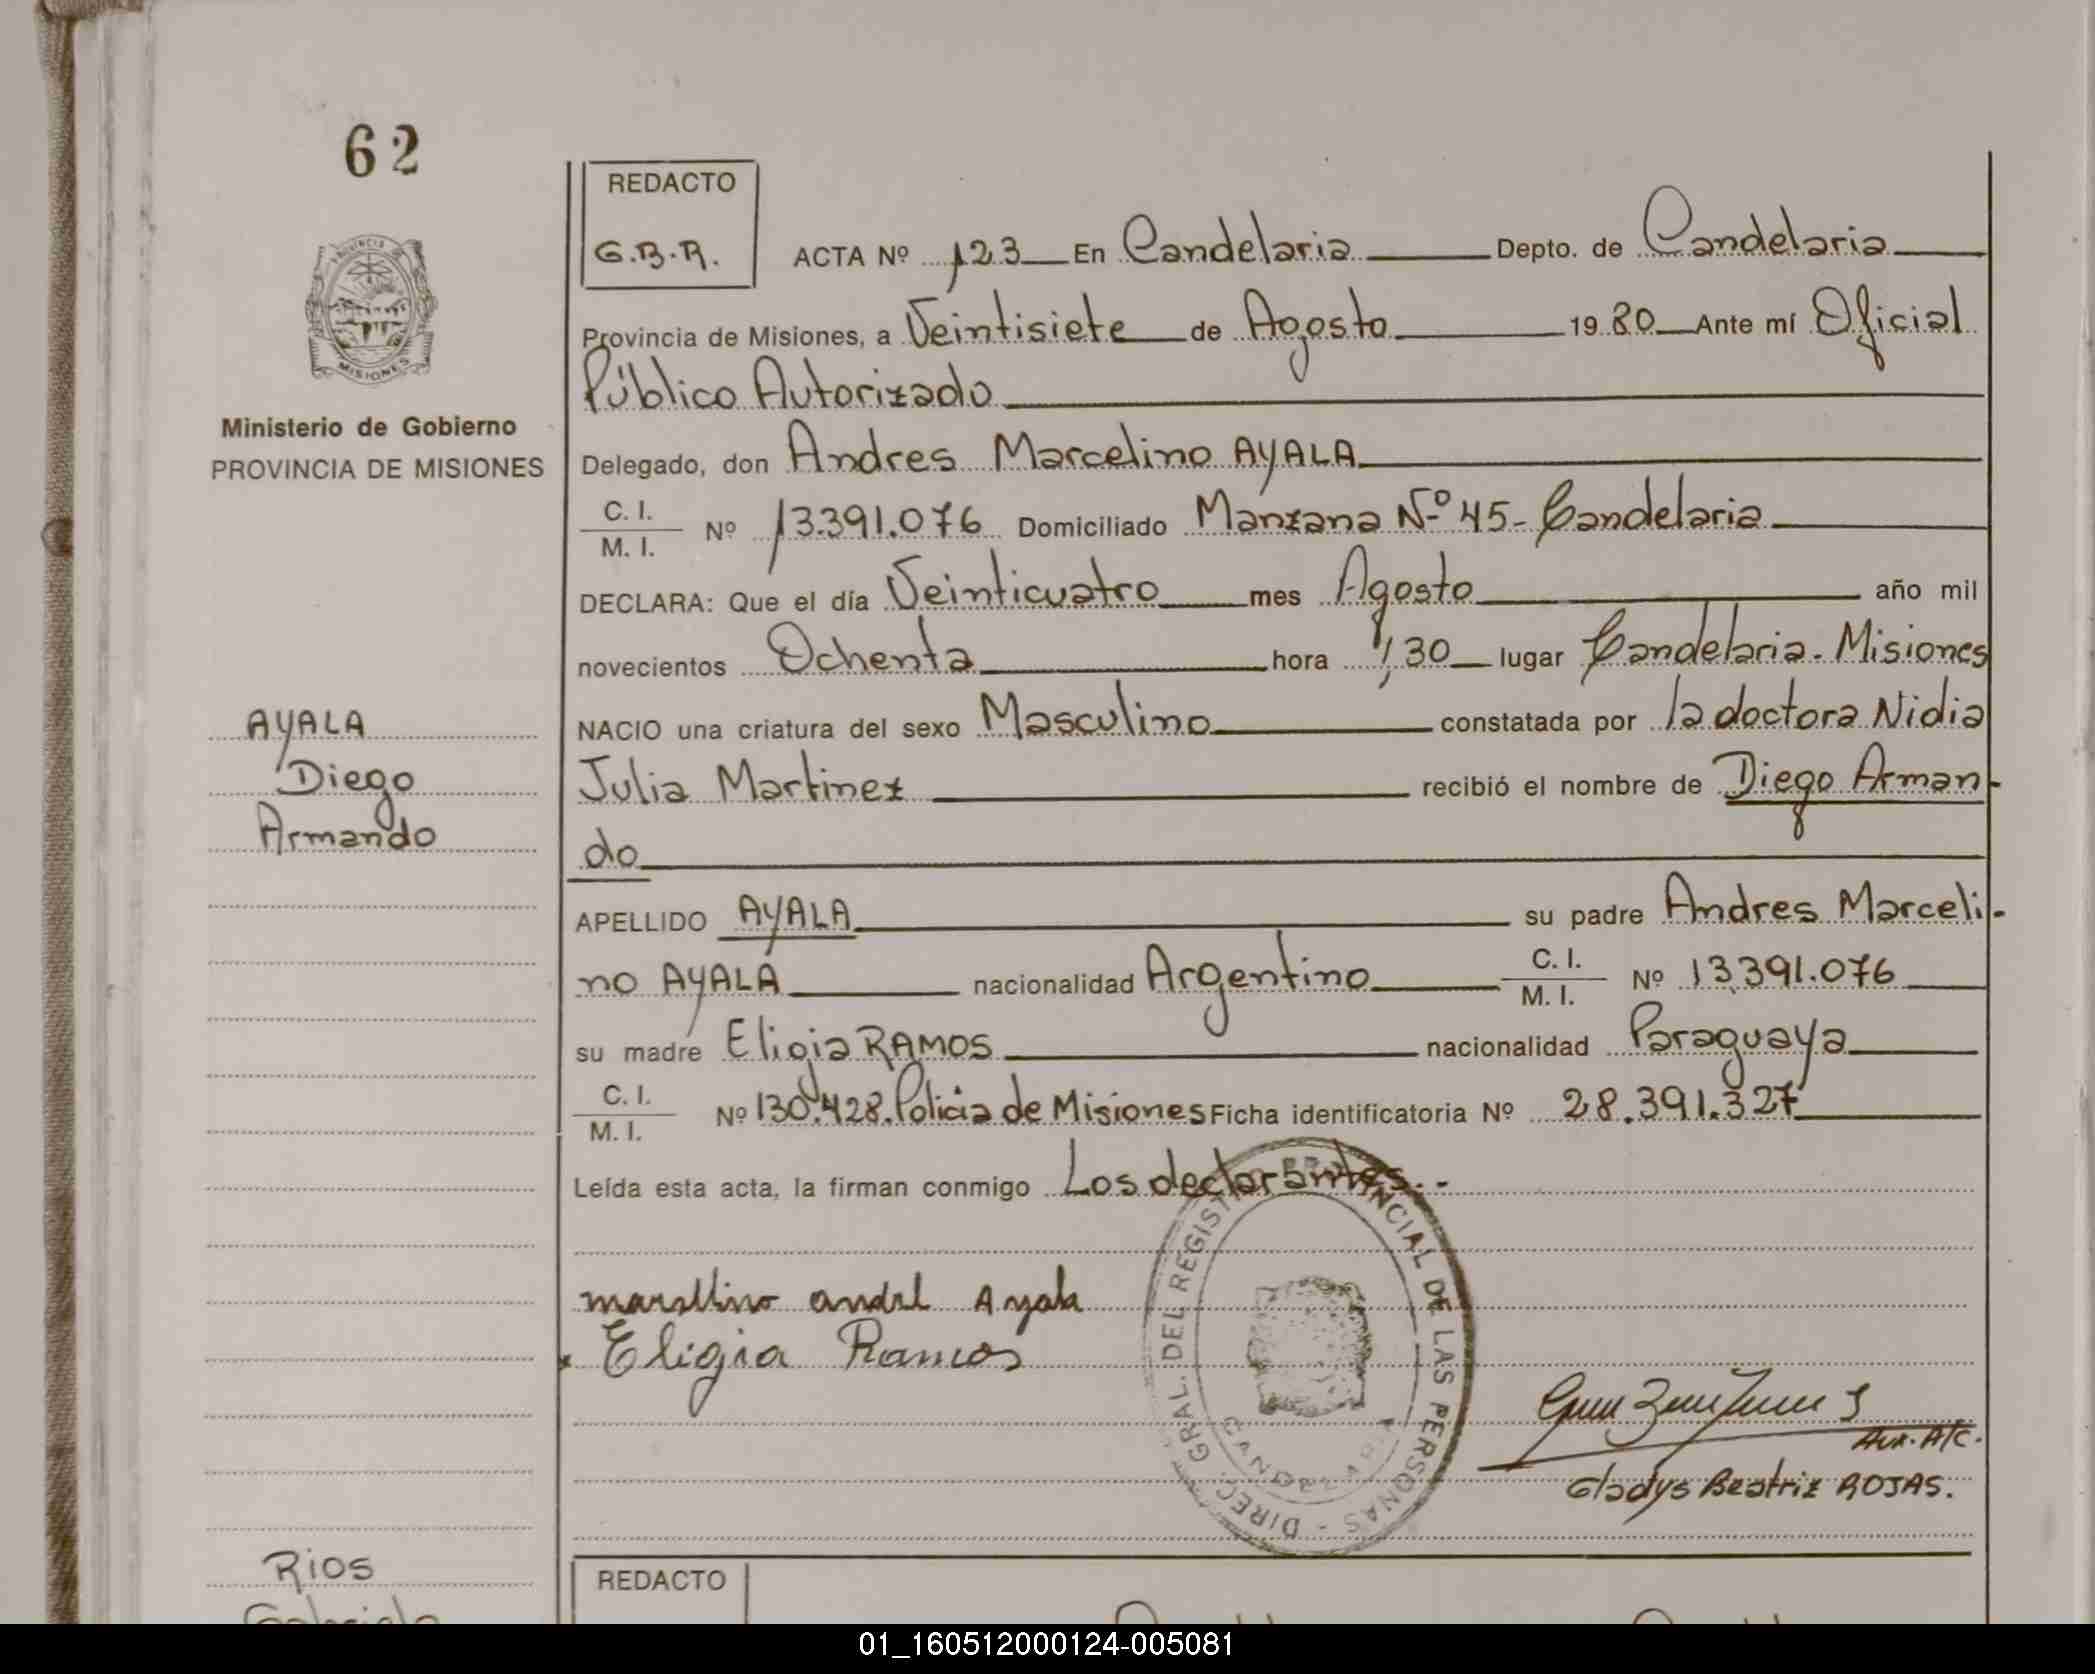 62
REDACTO
G.B.R.
ACTA Nº 123 En Candelaria Depto. de Candelaria
Provincia de Misiones, a Veintisiete de Agosto 1980 Ante mí Oficial
Público Autorizado
Ministerio de Gobierno
PROVINCIA DE MISIONES
Delegado, don Andres Marcelino AYALA
C. I.
M. I. Nº 13.391.076 Domiciliado Manzana Nº 45- Candelaria
DECLARA: Que el día Veinticuatro mes Agosto año mil
novecientos Ochenta hora 1,30 lugar Candelaria. Misiones
AYALA
Diego
Armando
NACIO una criatura del sexo Masculino constatada por la doctora Nidia
Julia Martinez recibió el nombre de Diego Arman-
do
APELLIDO AYALA su padre Andres Marceli-
no AYALA nacionalidad Argentino C. I. M. I. Nº 13.391.076
su madre Eligia RAMOS nacionalidad Paraguaya
C. I.
M. I. Nº 130.428. Policia de Misiones Ficha identificatoria Nº 28.391.327
Leída esta acta, la firman conmigo Los declarantes.-
Ayala
Eligia Ramos
DIREC. GRAL. DEL REGISTRO PROVINCIAL DE LAS PERSONAS -
CANDELARIA
Aux. A/C.
Gladys Beatriz ROJAS.
Rios
REDACTO
01_160512000124-005081